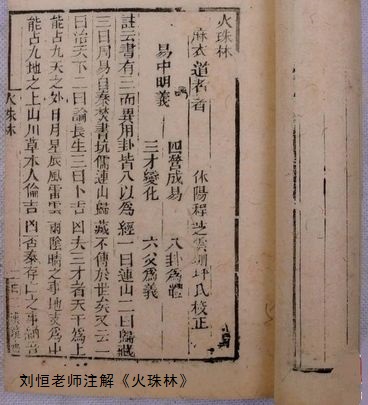 火珠林
麻衣道者著 休陽程芝雲坪氏校正
易中明義 四營成易 八卦為體
三才變化 六爻為義
註云書有三而異用卦皆八以為經一曰連山二曰歸藏
三曰周易自秦焚書坑儒連山歸藏不傳於世矣又云一
曰治天下二曰論長生三曰卜吉凶夫三才者天為上
能占九天之外日月星辰風雷雲雨陰晴之事地支為中
能占九地之上山川草木人倫吉凶否泰存亡之事納音
火珠林
刘恒老师注解《火珠林》